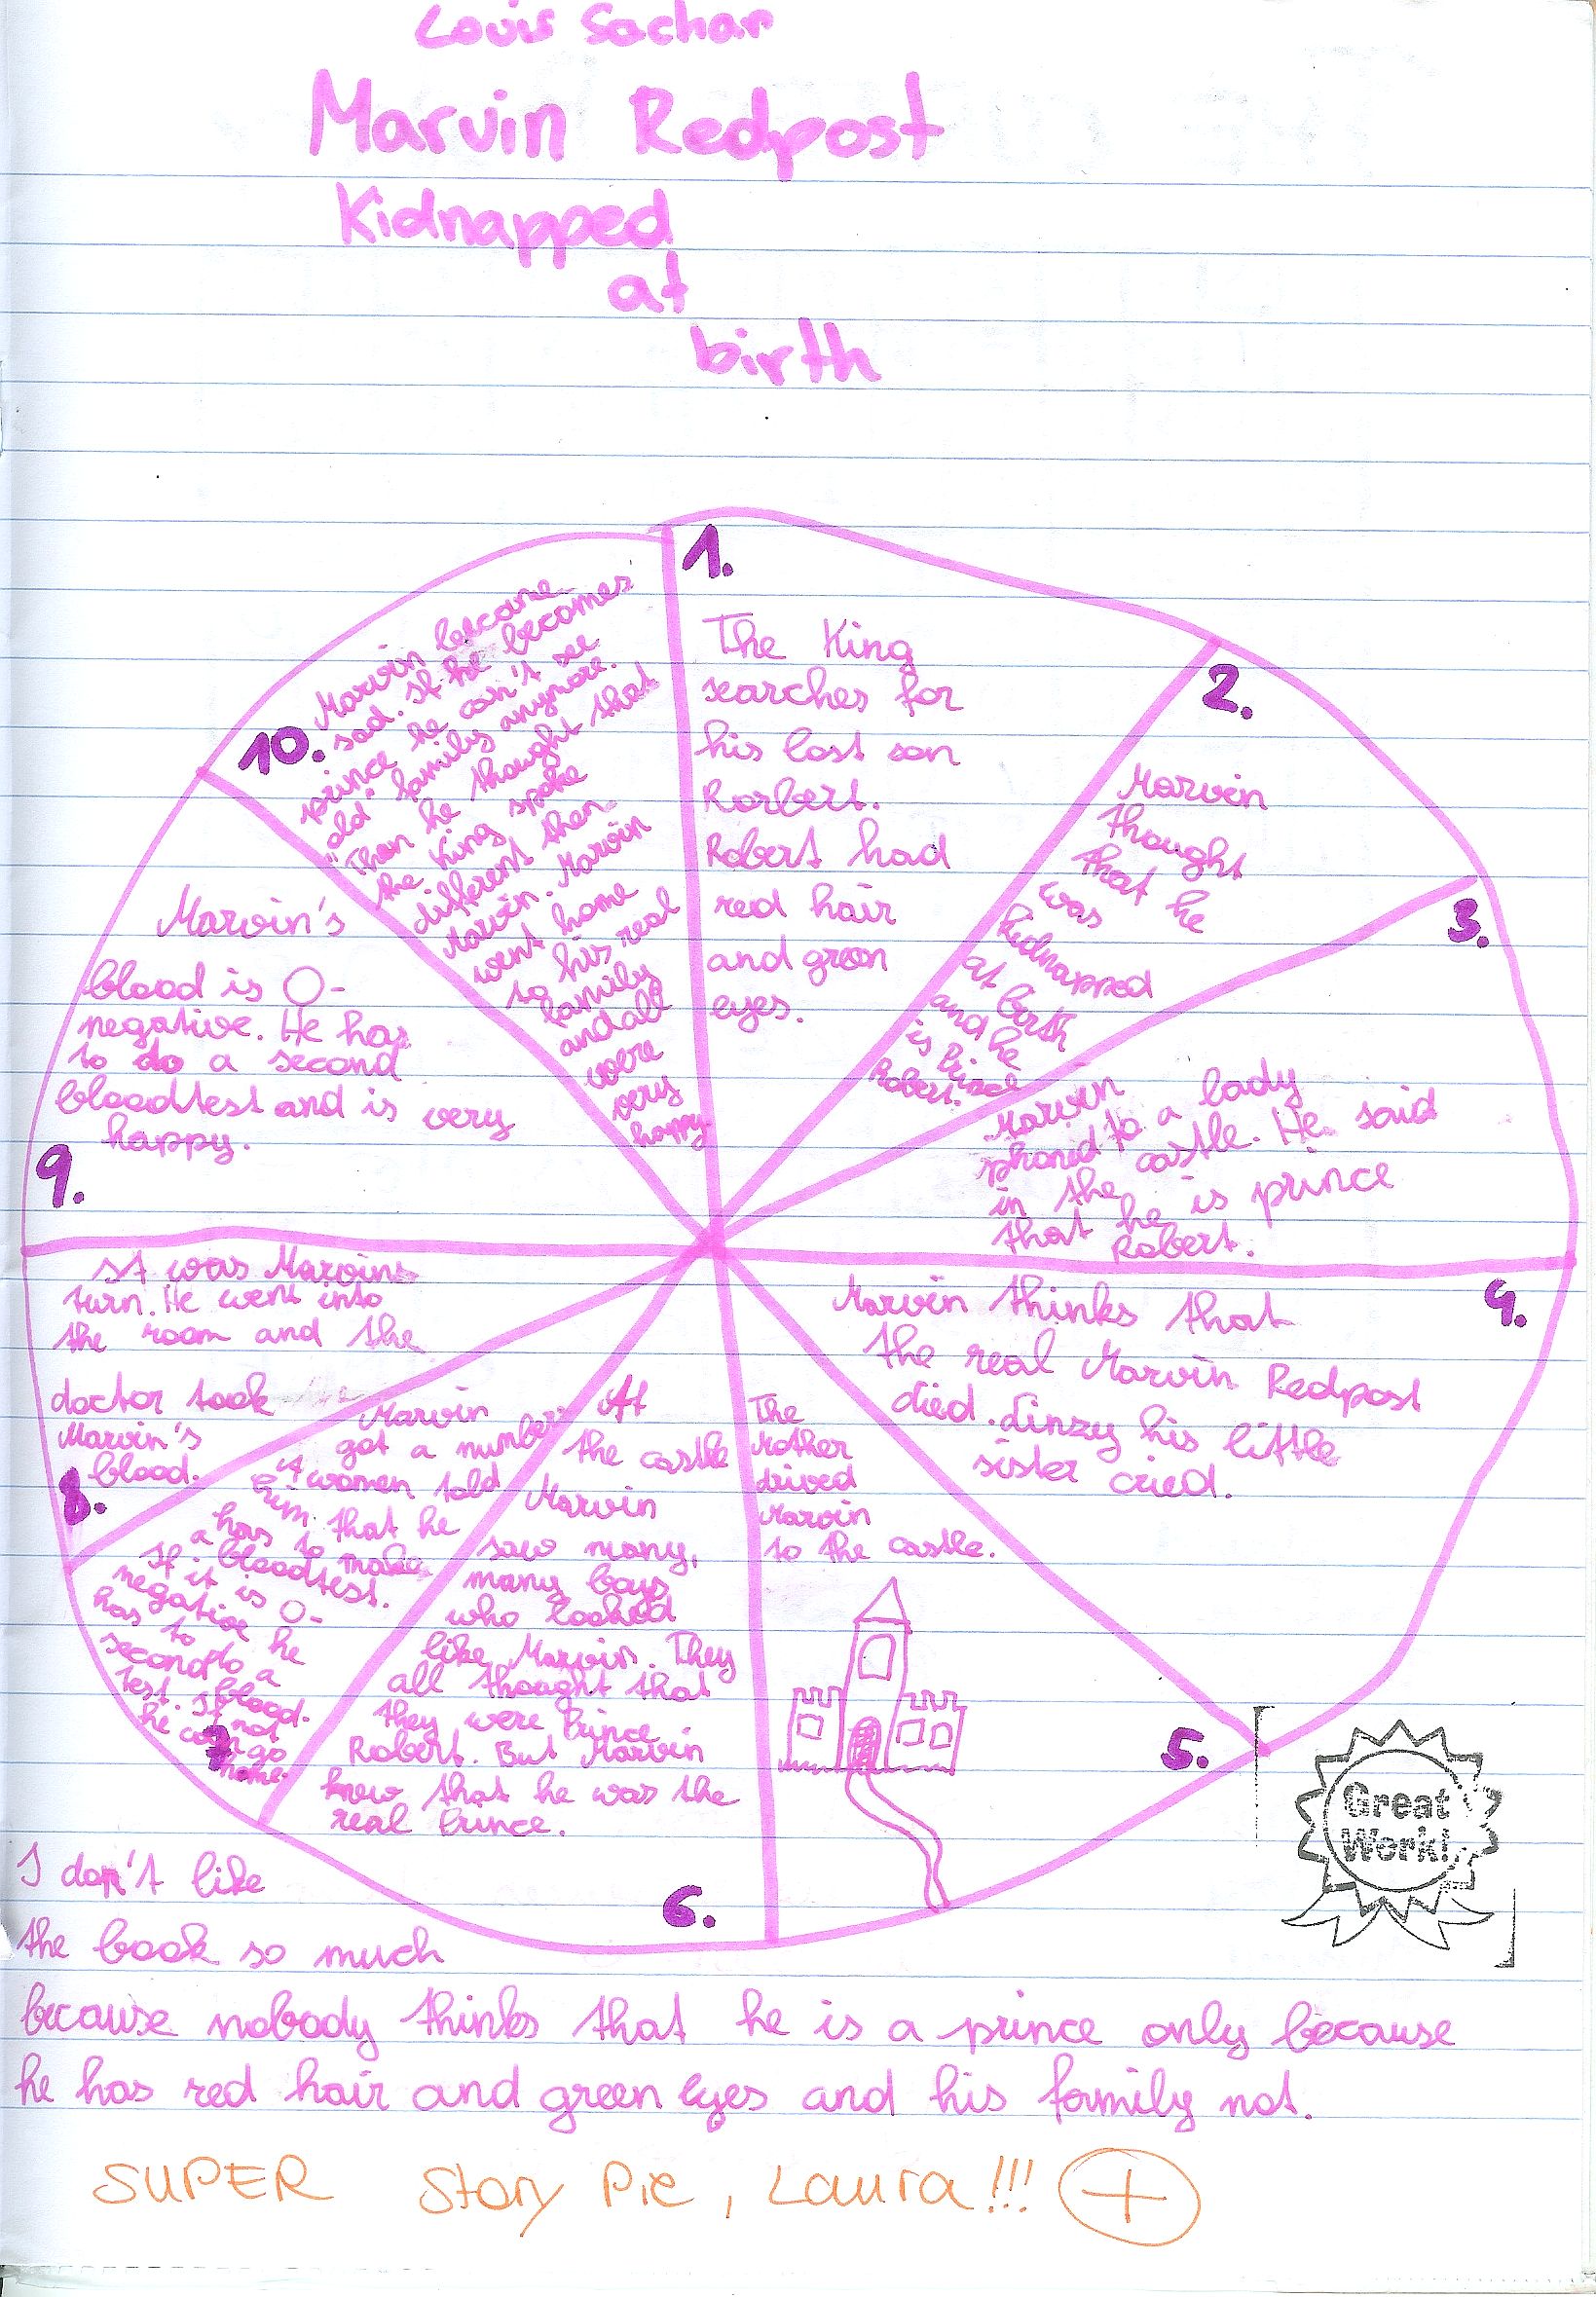 Louis Sachar
Marvin Redpost
Kidnapped
at
birth
1.
The King
searches for
his lost son
Rorbert.
Robert had
red hair
and green
eyes.
2.
Marvin
thought
that he
was
kidnapped
at birth
and he
is Prince
Robert.
3.
Marvin
phoned to a lady
in the castle. He said
that he is prince
Robert.
4.
Marvin thinks that
the real Marvin Redpost
died. Linzy his little
sister cried.
5.
The
Mother
drived
Marvin
to the castle.
6.
At
the castle
Marvin
saw many,
many boys
who looked
like Marvin. They
all thought that
they were Prince
Robert. But Marvin
knew that he was the
real Prince.
7
Marvin
got a number.
A women told
him that he
has to make
a bloodtest.
If it is O-
negative he
has to
do a
second
blood-
test. If not
he can go
home.
8.
It was Marvins
turn. He went into
the room and the
doctor took
Marvin's
blood.
9.
Marvin's
blood is O-
negative. He has
to do a second
bloodtest and is very
happy.
10.
Marvin become
sad. If he becomes
prince he can't see
"old" family anymore.
Then he thought that
the King spoke
different then
Marvin. Marvin
went home
to his real
family
and all
were
very
happy.
I don't like
the book so much
because nobody thinks that he is a prince only because
he has red hair and green eyes and his family not.
Great
Work!
SUPER Story Pie, Laura!!! +